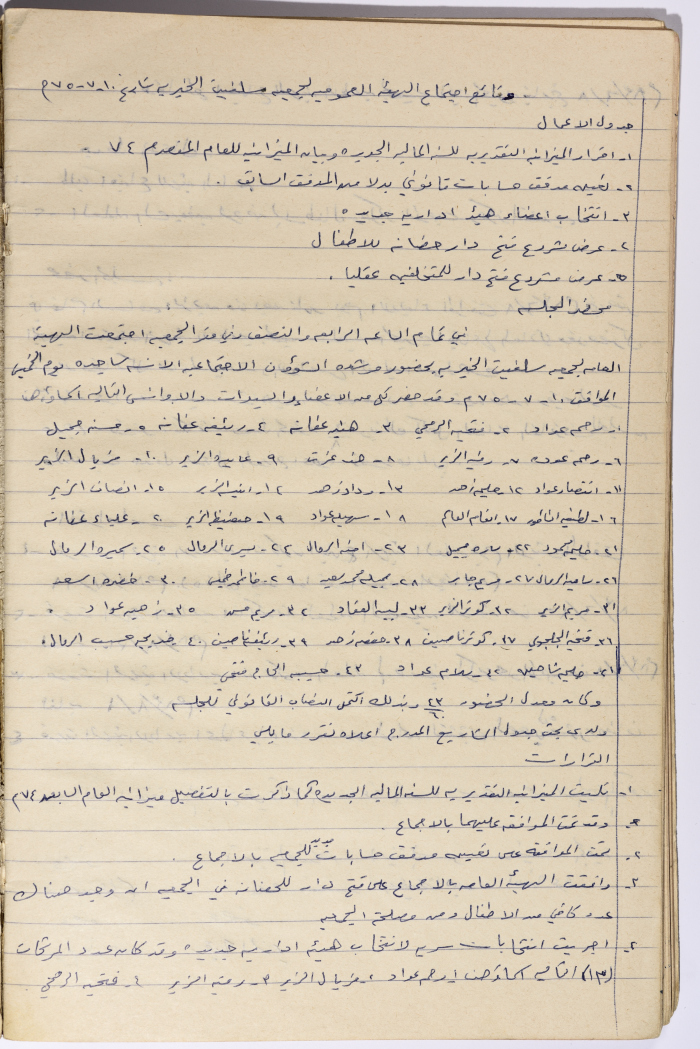 وقائع اجتماع الهيئة العموميه لجمعيه سلفيت الخيريه بتاريخ ١٠-٧-٧٥م
جدول الاعمال
١- اقرار الميزانيه التقديريه للسنه الماليه الجديده وبيان الميزانيه للعام المنصرم ٧٤
٢- تعيين مدقق حسابات قانوني بدلا من المدقق السابق .
٣- انتخاب اعضاء هيئه اداريه جديده
٤- عرض مشروع فتح دار حضانه للاطفال
٥- عرض مشروع فتح دار للمتخلفين عقليا .
محضر الجلسه
في تمام الساعه الرابعه والنصف وفي مقر الجمعيه اجتمعت الهيئة
العامه لجمعيه سلفيت الخيريه بحضور مرشده الشؤون الاجتماعيه الانسه ماجده يوم الخميس
الموافق ١٠-٧-٧٥م وقد حضر كل من الاعضاء والسيدات والاوانس التاليه اسماؤهن
١- رحمه عواد ٢- فتحيه ٣- هنيه عفانه ٤- رئيفه عفانه ٥- حسنه جميل
٦- رحمه عوده ٧- الزير ٨- هند عزت ٩- عايده الزير ١٠- فريال الزير
١١- انتصار عواد ١٢- حليمه زهد ١٣- رداد زهد ١٤- الزير ١٥- انصاف الزير
١٦- لطفيه ١٧- انعام ١٨- سهيله عواد ١٩- حفيظه الزير ٢٠- علياء عفانه
٢١- حليمه محمود ٢٢- ساره ٢٣- امنه الرمال ٢٤- يسرى الرمال ٢٥- سميره الرمال
٢٦- ساميه الرمال ٢٧- مريم جابر ٢٨- جميله محمد سعيد ٢٩- فاطمه ٣٠- خضره اسعد
٣١- مريم الزير ٣٢- كوثر الزير ٣٣- لبيبه العقاد ٣٤- مريم حسن ٣٥- زهيه عواد
٣٦- فتحيه ٣٧- كوثر ٣٨- حفصه زهد ٣٩- رئيفه ٤٠- خديجه حسيب الرمال
٤١- حليمه شاهين ٤٢- سلام عواد ٤٣- حسيبه الحاج فتحي
وكان معدل الحضور ٤٣ وبذلك اكتمل النصاب القانوني للجلسه
ولدى بحث جدول المشاريع المدرج اعلاه تقرر مايلي
القرارات
١- تليت الميزانيه التقديريه للسنه الماليه الجديده كما ذكرت بالتفصيل ميزانيه العام السابق ٧٤م
وقد تمت الموافقه عليهما بالاجماع .
٢- تمت الموافقة على تعيين مدقق حسابات جديد للجمعيه بالاجماع .
٣- وافقت الهيئه العامه بالاجماع على فتح دار للحضانه في الجمعيه اذ وجد هناك
عدد كافي من الاطفال ومن مصلحة الجمعيه
٤- اجريت انتخابات سريه لانتخاب هيئه اداريه جديده وقد كان عدد المرشحات
(١٣) التاليه اسماؤهن ١- رحمه عواد ٢- فريال الزير ٣- الزير ٤- فتحيه